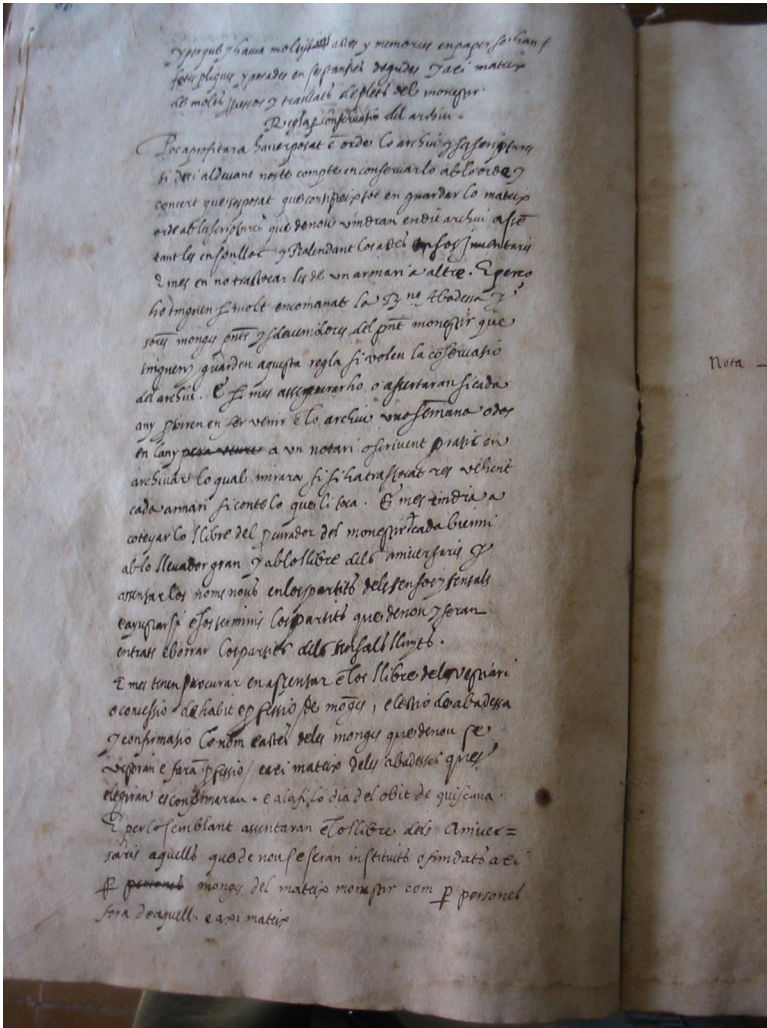 y perque y havia molts actes y memories en paper se han
fetes pliques y posades en ses stanties degudes y axi mateix
de molts processos y trasllats de plets del monestir.
Regla p conservatio del archiu.
Poc aprofitara haver posat ē orde lo archiu y ses scriptures
si de ci al devant no te compte en conservarlo ab lo orde y
concert que es posat que consisteix tot en guardar lo mateix
orde ab les scriptures que de nou vindran en dit archiu assē
tantles en son lloc y Kalendant los actes en sos inventaris
E mes en no trastocar les de un armari a altre. E perço
ho tinguen p molt encomanat la Rnt Abadessa y
sors monges pnts y sdevenidores del pnt monestir que
tinguen y guarden aquesta regla si volen la cōservatio
del archiu. E p mes assegurarho o assertaran si cada
any prviren en fer venir ē lo archiu una semana o dos
en lany a un notari o scrivent pratic en
archivar lo qual mirara si si ha trastocat res vehent
cada armari si conte lo que li toca. E mes tindria a
coteyar lo llibre del pcurador del monestir cada bienni
ab lo llevador gran y ab lo llibre dels aniversaris y
assentar los noms nous en los partits dels censos y censals
e ayustarsi ē sos terminis los partits que de nou y seran
entrats e borrar los partits dels censals lluits.
E mes tenen procurar en assentar ē los llibre del vestiari
o concessio de habit e pfessio de mōges, electio de abadessa
y confirmasio lo nom e actes deles monges que de nou se
vestiran e farā pfessio / e axi mateix deles abadesses ques
elegiran e sconfirmaran. e a la fi lo dia del obit de quiscuna.
E per lo semblant assentaran ē lo llibre dels Aniver=
saris aquells que de nou se seran instituits o fundats axi
p monges del mateix monestir com p persones
fora de aquell. e axi mateix
Nota